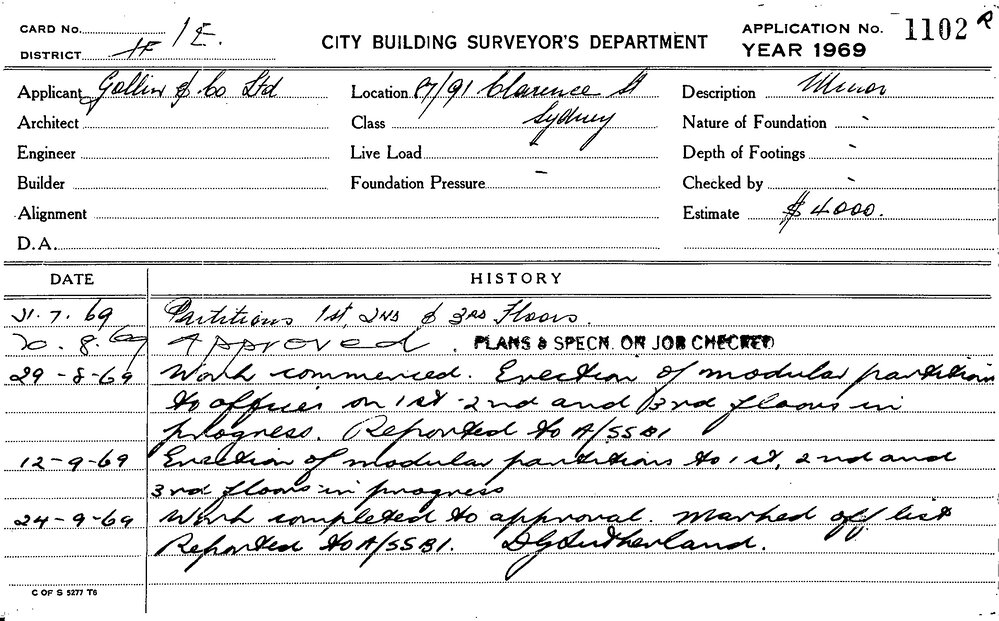 CARD No. 1E.
DISTRICT 1F
CITY BUILDING SURVEYOR'S DEPARTMENT
APPLICATION No. 1102 R
YEAR 1969
Applicant Gollin & Co Ltd Location 87/91 Clarence St Description Minor
Architect Class Sydney Nature of Foundation -
Engineer Live Load Depth of Footings -
Builder Foundation Pressure - Checked by -
Alignment Estimate $4000.
D.A.
DATE HISTORY
31.7.69 Partitions 1st, 2nd & 3rd Floors.
20.8.69 Approved. PLANS & SPECN. ON JOB CHECKED
29-8-69 Work commenced. Erection of modular partitions
to offices on 1st - 2nd and 3rd floors in
progress. Reported to A/SSBI
12-9-69 Erection of modular partitions to 1st, 2nd and
3rd floors in progress
24-9-69 Work completed to approval. Marked off list
Reported to A/SSBI. DGSutherland.
C OF S 5277 T6